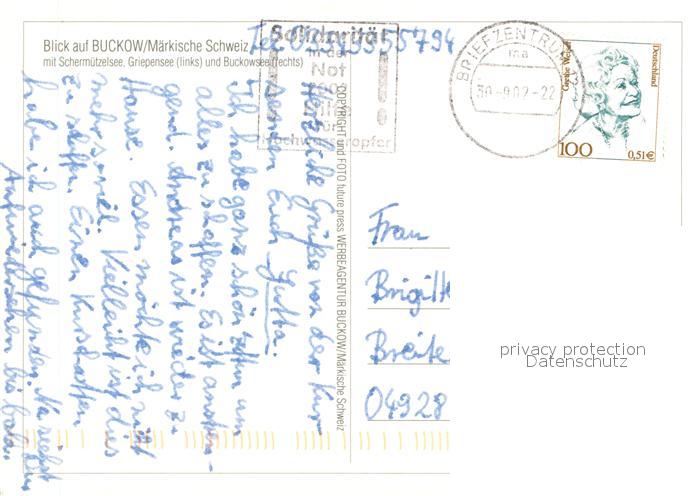 Blick auf BUCKOW/Märkische Schweiz
mit Schermützelsee, Griepensee (links) und Buckowsee (rechts)
Tel 0334 3355794
Solidarität
in der
Not
Hilfe
für
Hochwasseropfer
BRIEFZENTRUM 12
ma
30.-9.02-22
Deutschland
100
0,51€
Herzliche Grüße von der Kur
sendet Euch Jutta.
Ich habe ganz schön zu tun um
alles zu schaffen. Es ist anstren-
gend. Andreas ist wieder zu
Hause. Essen möchte ich nicht
mehr soviel. Vielleicht ist das
zu schaffen. Einen Kurschatten
habe ich auch gefunden. Na siehst Du
Aufwiedersehen bis bald.
COPYRIGHT und FOTO future press WERBEAGENTUR BUCKOW/Märkische Schweiz
Frau
Brigitte
Breite
04928
privacy protection
Datenschutz